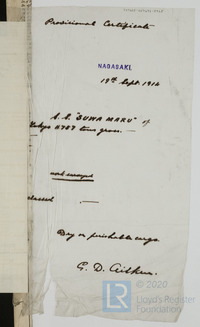 Provisional Certificate
NAGASAKI,
19th Sept. 1914
S.S. "SUWA MARU" of
Tokyo 11757 tons gross.—
not surveyed
classed
Dry or perishable cargo.
G. D. Aitken.
© 2020
LR
Lloyd's Register
Foundation